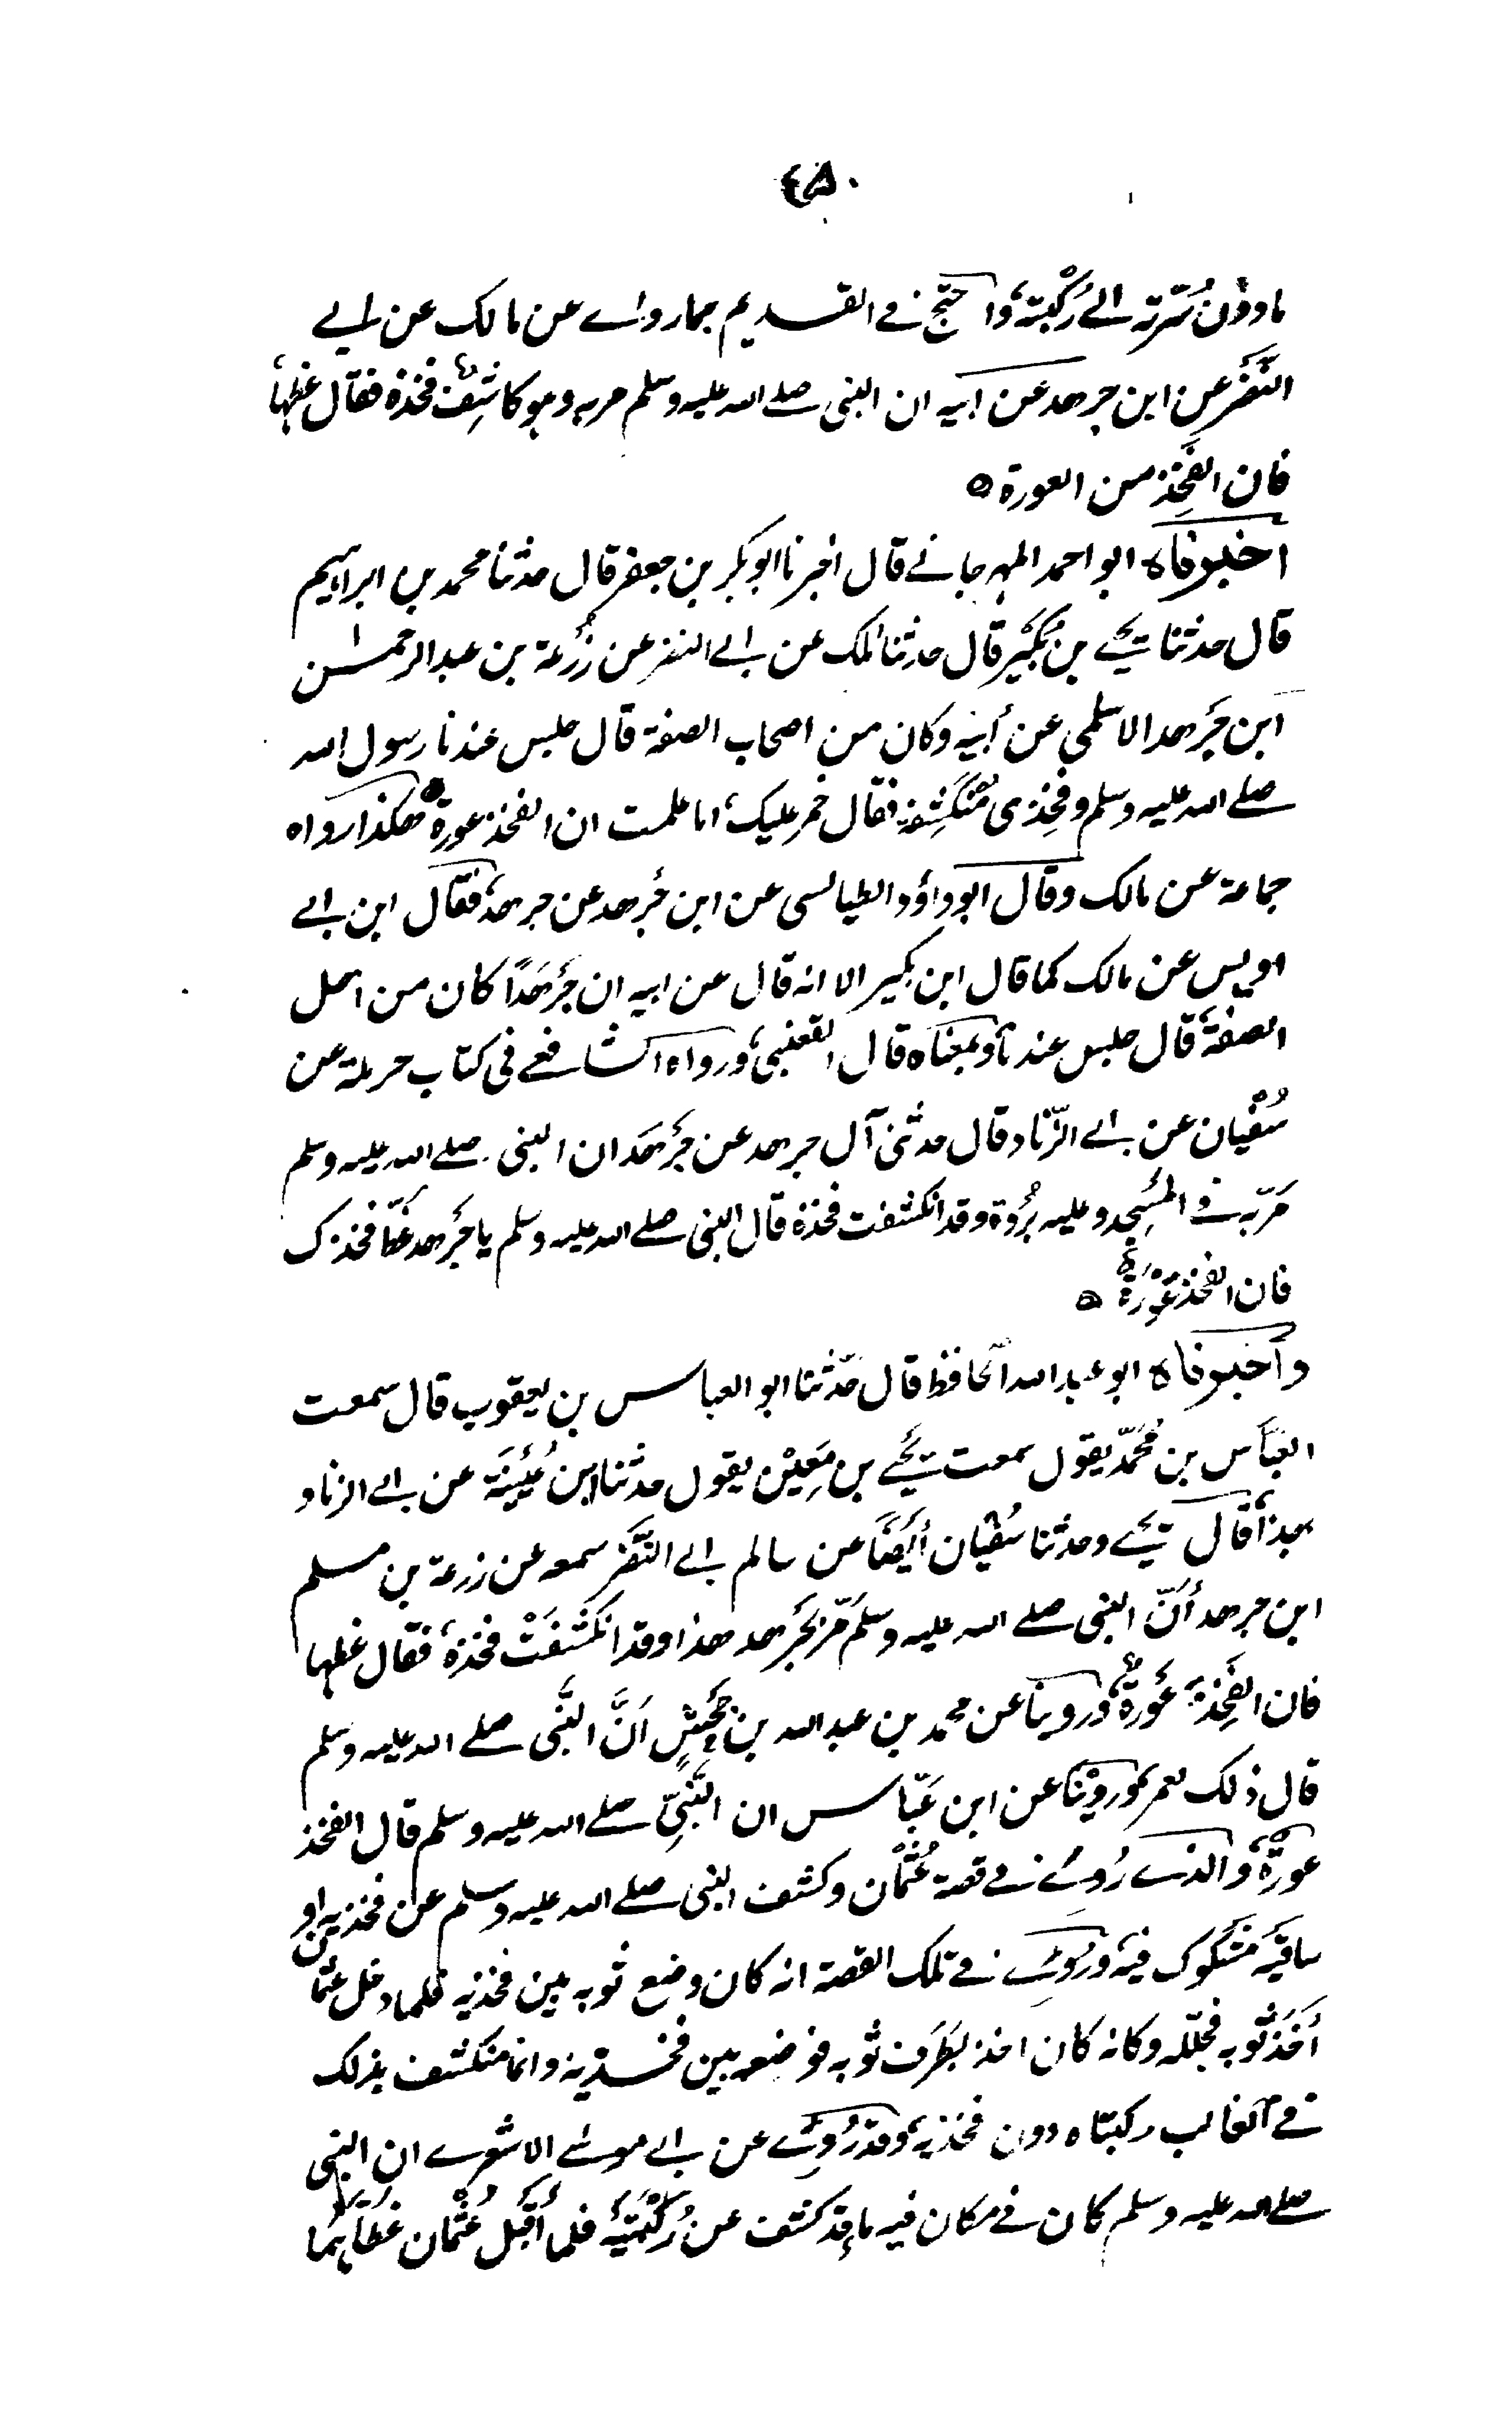 ٤٥٠
مادون سُرّته الے رُكْبَته، واحتج فے القديم بما رواے عن مالك عن ابے
النَّضْر عن ابن جرهد عن ابيه ان النبی صلے الله عليه وسلم مر به وهو كاشِفٌ فخذه فقال غطها
فان الفَخِذ من العورة ۝
اخبرناه ابو احمد المهرجانے قال اخبرنا ابو بكر بن جعفر قال حدثنا محمد بن ابراهيم
قال حدثنا يحيے بن بُكَيْر قال حدثنا مالك عن ابے النضر عن زُرْعة بن عبد الرحمٰن
ابن جَرهد الاسلمی عن أبيه وكان من اصحاب الصفة قال جلس عندنا رسول الله
صلے الله عليه وسلم وفخِذی مُنْكَشِفة فقال خمر عليك، اما علمت ان الفخذ عورة هكذا رواه
جماعة عن مالك وقال ابو داؤد الطيالسی عن ابن جَرهد عن جرهد، فقال ابن ابے
اويس عن مالك كما قال ابن بكير الا انه قال عن ابيه ان جَرْهَدًا كان من اهل
الصفة، قال جلس عندنا، وبمعناه قال القعنبی، ورواه الشافعے فی كتاب حرملة عن
سُفْيان عن ابے الزّناد قال حدثنی آل جرهد عن جَرْهَد ان النبی صلے الله عليه وسلم
مَرّ به فے المسْجِد وعليه بُرْدة وقد انكشفت فخذه قال النبی صلے الله عليه وسلم يا جَرْهد غَطِّ فخذك
فان الفخذ عَوْرَةٌ ۝
وأخبرناه ابو عبد الله الحافظ قال حدّثنا ابو العباس بن يعقوب قال سمعت
العَبّاس بن مُحَمّد يقول سمعت يَحيے بن مَعِيْن يقول حدثنا ابن عُيَيْنَة عن ابے الزناد
بهذا، قال يحيے وحدثنا سُفْيان أيضًا عن سالم ابے النَّضر سمعه عن زرعة بن مسلم
ابن جرهد أنّ النبی صلے الله عليه وسلم مَرّ بجَرْهد هذا وقد انكَشفَتْ فخذه، فقال غطها
فان الفَخِذ عَوْرةٌ، وروينا عن محمد بن عبد الله بن جَحْشٍ اَنَّ النَّبی صلے الله عليه وسلم
قال ذلك لمعمر، وروَيْنا عن ابن عَبّاس ان النَّبِیّ صلے الله عليه وسلم قال الفخذ
عورةٌ، والذے رُوِے فے قصة عُثْمان وكشف النبی صلے الله عليه وسلم عن فخذيه او
ساقيْه مَشكوك فيه، ورُوِے فے تلك القصة انه كان وضع ثوبه بين فخذيه فلما دخل عثمان
أَخَذ ثوبه فجلّله وكانه كان اخذ بطَرَف ثوبه فوضعه بين فخذيه وانما منكشف بذلك
فے الغالب ركبتاه دون فخذيه، وقد رُوِے عن ابے موسٰے الاشعرے ان النبی
صلے الله عليه وسلم كان فے مكان فيه ماء قد كشف عن رُكْبَتَيْه فلما أقْبَل عُثْمان غَطَّاهُمَا